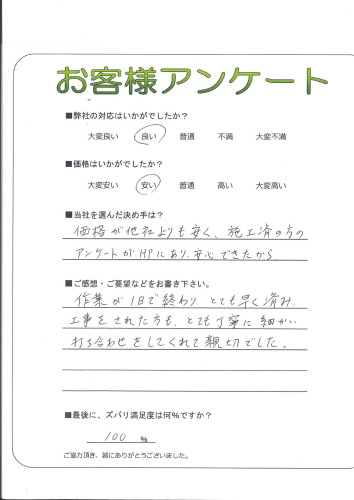 お客様アンケート
■弊社の対応はいかがでしたか?
大変良い 良い 普通 不満 大変不満
■価格はいかがでしたか?
大変安い 安い 普通 高い 大変高い
■当社を選んだ決め手は?
価格が他社よりも安く、施工済の方の
アンケートがHPにあり、安心できたから
■ご感想・ご要望などをお書き下さい。
作業が1日で終わり とても早く済み、
工事をされた方も、とても丁寧に細かい
打ち合わせをしてくれて親切でした。
■最後に、ズバリ満足度は何%ですか?
100 %
ご協力頂き、誠にありがとうございました。